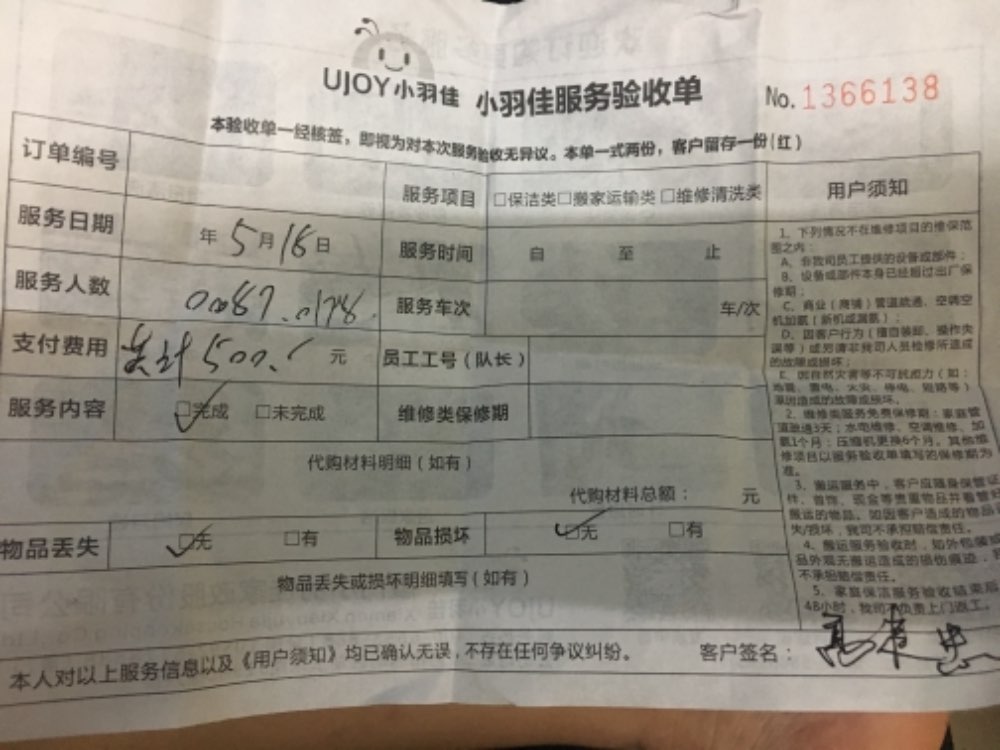 UJOY小羽佳 小羽佳服务验收单 No.1366138
本验收单一经核签，即视为对本次服务验收无异议。本单一式两份，客户留存一份(红)
订单编号 服务项目 □保洁类□搬家运输类□维修清洗类
服务日期 年5月16日 服务时间 自 至 止
服务人数 0087.0178. 服务车次 车/次
支付费用 共计500. 元 员工工号（队长）
服务内容 □完成 □未完成 维修类保修期
代购材料明细（如有）
代购材料总额： 元
物品丢失 □无 □有 物品损坏 □无 □有
物品丢失或损坏明细填写（如有）
本人对以上服务信息以及《用户须知》均已确认无误，不存在任何争议纠纷。 客户签名：
用户须知
1、下列情况不在维修项目的维保范
围之内：
A、非我司员工提供的设备或部件；
B、设备或部件本身已经超过出厂保
修期；
C、商业（商铺）管道疏通、空调空
机加氨（新机或漏氨）；
D、因客户行为（擅自装卸、操作失
误等）或另请非我司人员检修所造成
的故障或损坏；
E、因自然灾害等不可抗拒力（如：
地震、雷电、火灾、停电、短路等）
原因造成的故障或损坏。
2、维修类服务免费保修期：家庭管
道疏通3天；水电维修、空调维修、加
氨1个月；压缩机更换6个月。其他维
修项目以服务验收单填写的保修期为
准。
3、搬运服务中，客户应随身保管证
件、首饰、现金等贵重物品并看管
搬运的物品。如因客户造成的物品
失/损坏，我司不承担赔偿责任。
4、搬运服务验收时，如外包装或
品外观无搬运造成的损伤痕迹，
不承担赔偿责任。
5、家庭保洁服务验收结束后
48小时，我司负责上门返工。